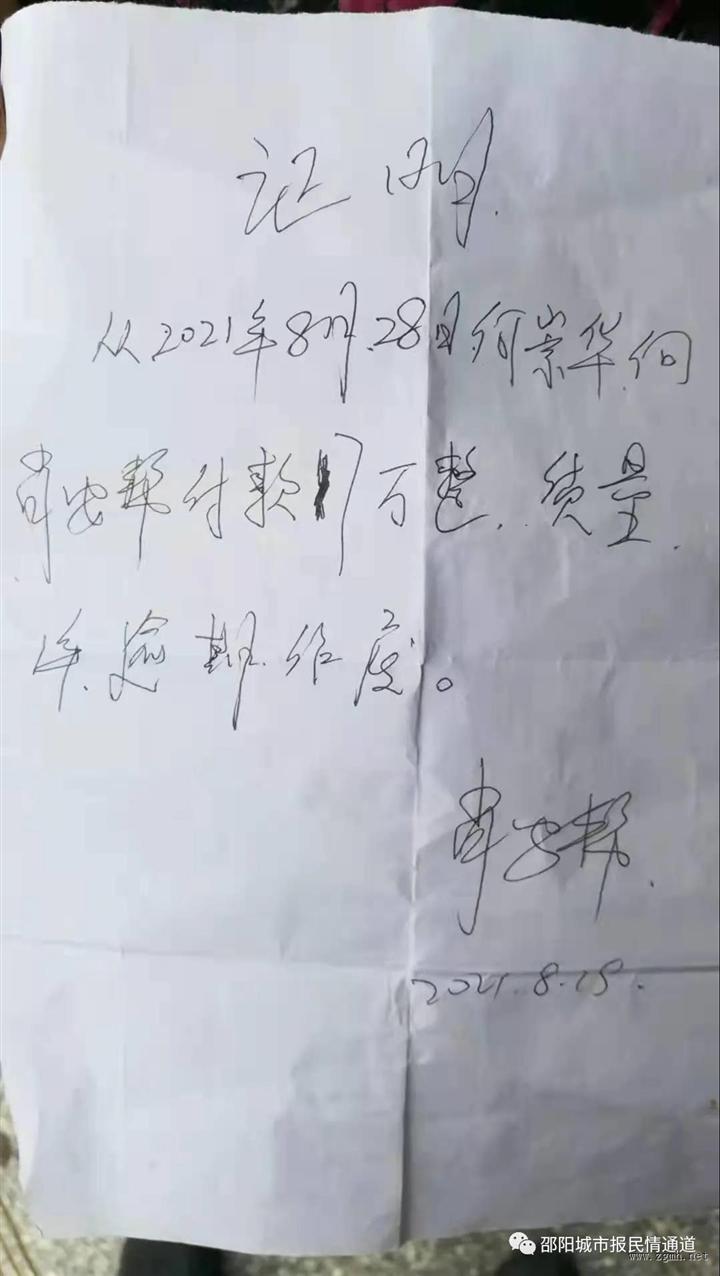 证明
从2021年8月28日何崇华向
肖安帮付款 7万整. 质量
年.逾期作废。
肖安帮.
2021.8.19.
邵阳城市报民情通道
www.zgmh.net